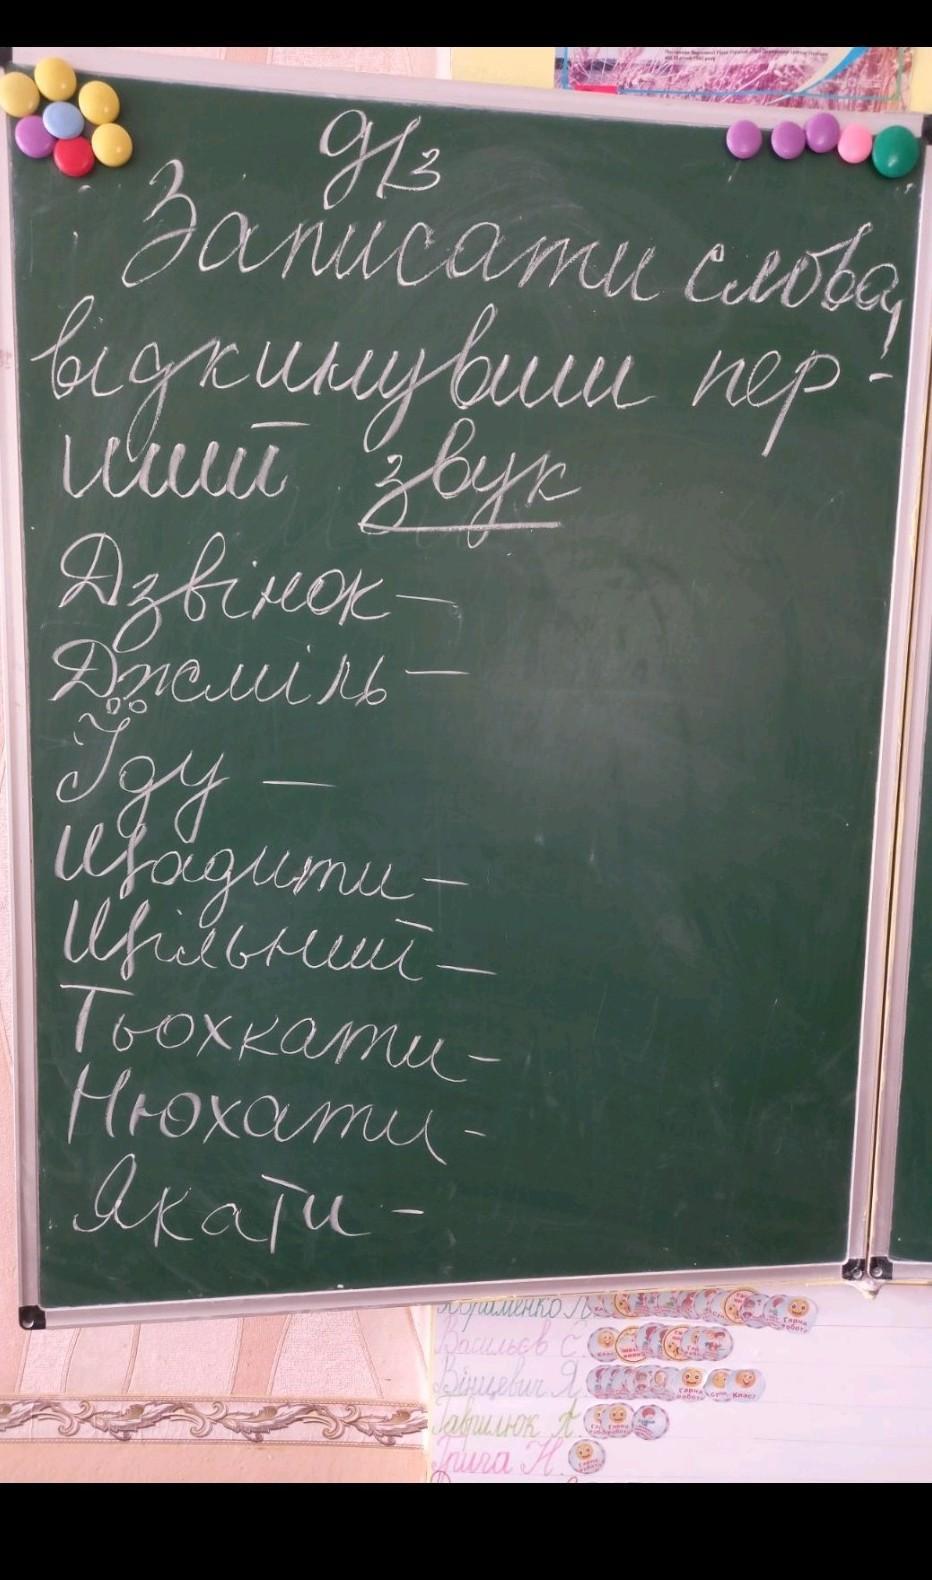 ДЗ
Записати слова,
відкинувши пер-
ший звук
Дзвінок –
Джміль –
Їду –
Щадити –
Щільний –
Тьохкати –
Нюхати –
Якати –
Васильєв Є.
Вінцевич Я.
Гаврилюк А.
Грига Н.